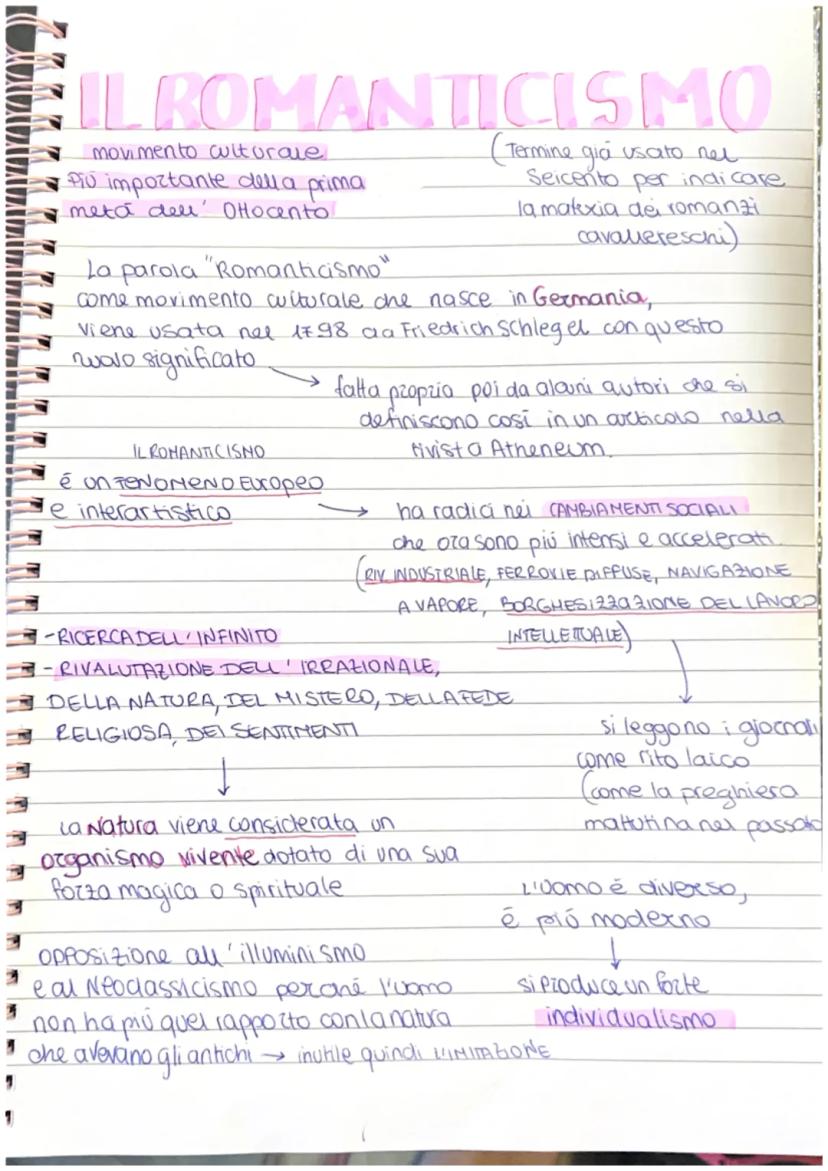 IL ROMANTICISMO
movimento culturale
più importante della prima
metà dell' Ottocento
(Termine già usato nel
Seicento per indicare
la materia dei romanzi
cavallereschi)
La parola "Romanticismo"
come movimento culturale che nasce in Germania,
viene usata nel 1798 da Friedrich Schlegel con questo
nuovo significato
→ fatta propria poi da alcuni autori che si
definiscono così in un articolo nella
rivista Atheneum.
IL ROMANTICISMO
é un FENOMENO Europeo
e interartistico
→ ha radici nei CAMBIAMENTI SOCIALI
che ora sono più intensi e accelerati.
(RIV INDUSTRIALE, FERROVIE DIFFUSE, NAVIGAZIONE
A VAPORE, BORGHESIZZAZIONE DEL LAVORO
INTELLETTUALE)
-RICERCA DELL' INFINITO
- RIVALUTAZIONE DELL' IRRAZIONALE,
DELLA NATURA, DEL MISTERO, DELLA FEDE
RELIGIOSA, DEI SENTIMENTI
↓
si leggono i giornali
come rito laico
(come la preghiera
mattutina nel passato
↓
La Natura viene considerata un
organismo vivente dotato di una sua
forza magica o spirituale
L'uomo é diverso,
é più moderno
↓
si produce un forte
individualismo
OPPOSIZIONE all'illuminismo
e al Neoclassicismo perché l'uomo
non ha più quel rapporto con la natura
che avevano gli antichi → inutile quindi L'IMITAZIONE